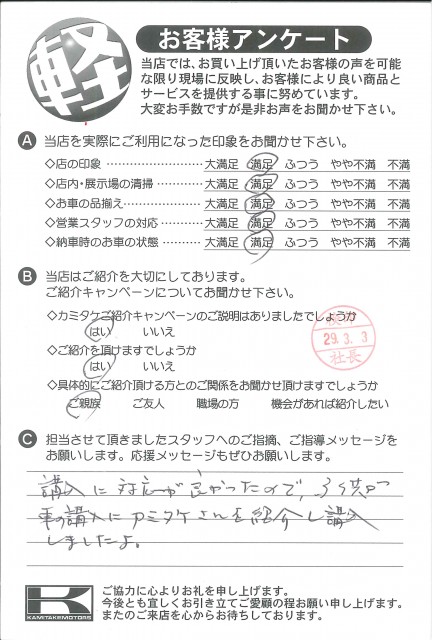 軽
お客様アンケート
当店では、お買い上げ頂いたお客様の声を可能
な限り現場に反映し、お客様により良い商品と
サービスを提供する事に努めています。
大変お手数ですが是非お声をお聞かせ下さい。
A 当店を実際にご利用になった印象をお聞かせ下さい。
◇店の印象 ………………… 大満足 満足 ふつう やや不満 不満
◇店内・展示場の清掃 ………… 大満足 満足 ふつう やや不満 不満
◇お車の品揃え ……………… 大満足 満足 ふつう やや不満 不満
◇営業スタッフの対応 ………… 大満足 満足 ふつう やや不満 不満
◇納車時のお車の状態 ………… 大満足 満足 ふつう やや不満 不満
B 当店はご紹介を大切にしております。
ご紹介キャンペーンについてお聞かせ下さい。
◇カミタケご紹介キャンペーンのご説明はありましたでしょうか
はい いいえ
◇ご紹介を頂けますでしょうか
はい いいえ
29.3.3
社長
◇具体的にご紹介頂ける方とのご関係をお聞かせ頂けますでしょうか
ご親族 ご友人 職場の方 機会があれば紹介したい
C 担当させて頂きましたスタッフへのご指摘、ご指導メッセージを
お願いします。応援メッセージもぜひお願いします。
講入に対応が良かったので、
車の講入にカミタケさんを紹介し講入
しましたよ。
K
KAMITAKEMOTORS
ご協力に心よりお礼を申し上げます。
今後とも宜しくお引き立てご愛顧の程お願い申し上げます。
またのご来店を心からお待ちしております。